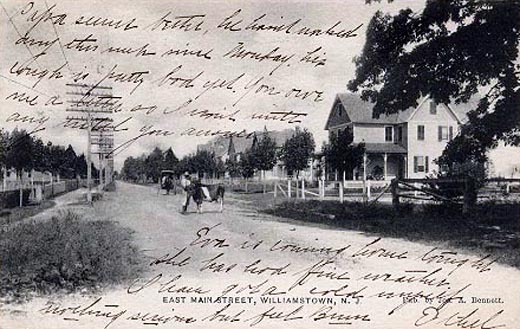 Papa seems better, he hasn't worked
any this week since Monday, his
cough is pretty bad yet. You owe
me a letter so I won't write
any more till you answer
Eva is coming home tonight
she has had fine weather.
I have got a cold myself
EAST MAIN STREET, WILLIAMSTOWN, N. J.
Pub. by Jos. A. Bennett.
nothing serious but feel Bum Ethel